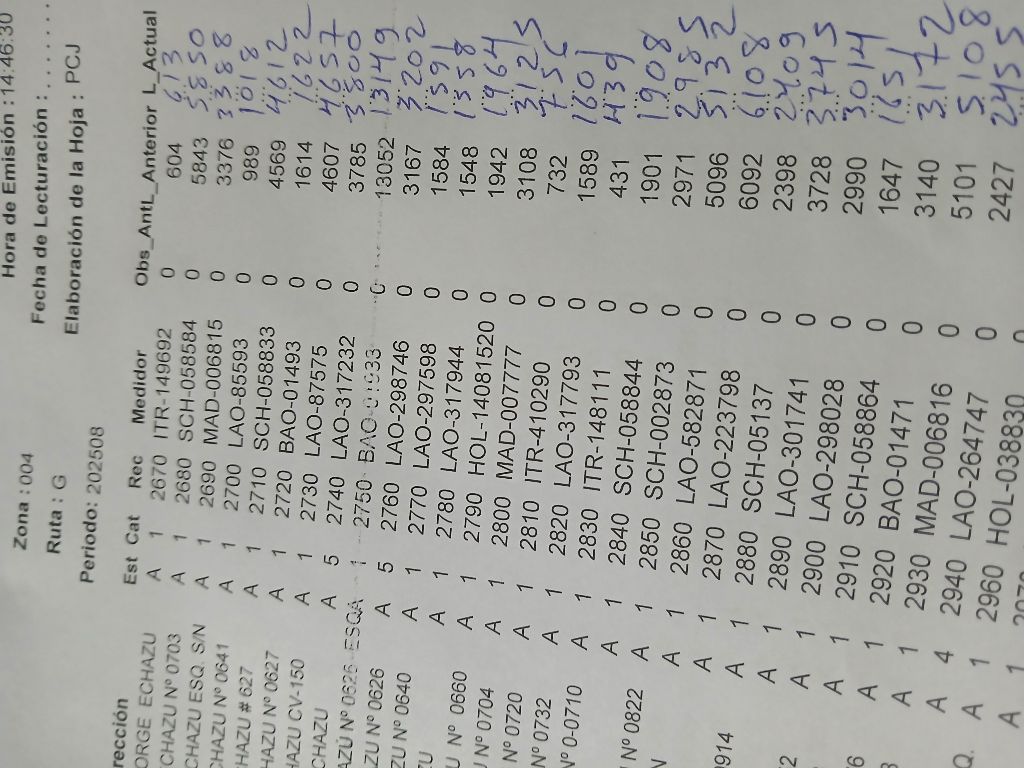 Hora de Emisión : 14:46:30
Zona : 004 Fecha de Lecturación : . . . . . .
Ruta : G Elaboración de la Hoja : PCJ
Periodo: 202508
rección Est Cat Rec Medidor Obs_AntL_Anterior L_Actual
ORGE ECHAZU A 1 2670 ITR-149692 0 604 613
CHAZU Nº 0703 A 1 2680 SCH-058584 0 5843 5850
CHAZU ESQ. S/N A 1 2690 MAD-006815 0 3376 3388
CHAZU Nº 0641 A 1 2700 LAO-85593 0 989 1018
HAZU # 627 A 1 2710 SCH-058833 0 4569 4612
HAZU Nº 0627 A 1 2720 BAO-01493 0 1614 1622
HAZU CV-150 A 1 2730 LAO-87575 0 4607 4657
CHAZU A 5 2740 LAO-317232 0 3785 3800
AZÚ Nº 0626 -ESQA 1 2750 0 13052 13149
ZU Nº 0626 A 5 2760 LAO-298746 0 3167 3202
ZU Nº 0640 A 1 2770 LAO-297598 0 1584 1591
ZU A 1 2780 LAO-317944 0 1548 1558
U Nº 0660 A 1 2790 HOL-14081520 0 1942 1964
U Nº 0704 A 1 2800 MAD-007777 0 3108 3125
Nº 0720 A 1 2810 ITR-410290 0 732 756
Nº 0732 A 1 2820 LAO-317793 0 1589 1601
Nº 0-0710 A 1 2830 ITR-148111 0 431 439
A 1 2840 SCH-058844 0 1901 1908
Nº 0822 A 1 2850 SCH-002873 0 2971 2985
N A 1 2860 LAO-582871 0 5096 5132
A 1 2870 LAO-223798 0 6092 6108
0914 A 1 2880 SCH-05137 0 2398 2409
A 1 2890 LAO-301741 0 3728 3745
2 A 1 2900 LAO-298028 0 2990 3014
A 1 2910 SCH-058864 0 1647 1651
6 A 1 2920 BAO-01471 0 3140 3172
A 1 2930 MAD-006816 0 5101 5108
A 4 2940 LAO-264747 0 2427 2455
Q. A 1 2960 HOL-038830 0
A 1